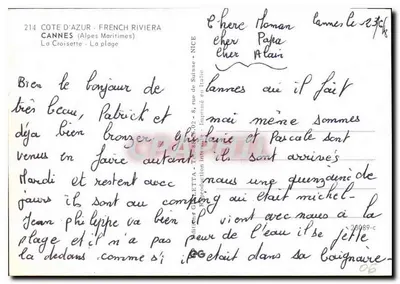 214 COTE D'AZUR - FRENCH RIVIERA
CANNES (Alpes Maritimes)
La Croisette - La plage
Chere Maman Cannes le
cher Papa
cher Alain
Bien le bonjour de Cannes où il fait
très beau, Patrick et moi même sommes
déja bien bronzer, Ghislaine et Pascale sont
venus en faire autant ils sont arrivés
Mardi et restent avec nous une quinzaine de
jours ils sont au camping ou etait michel-
Jean philippe va bien il vient avec nous à la
plage et il n'a pas peur de l'eau il se jette
la dedans comme s'il etait dans sa baignoire-